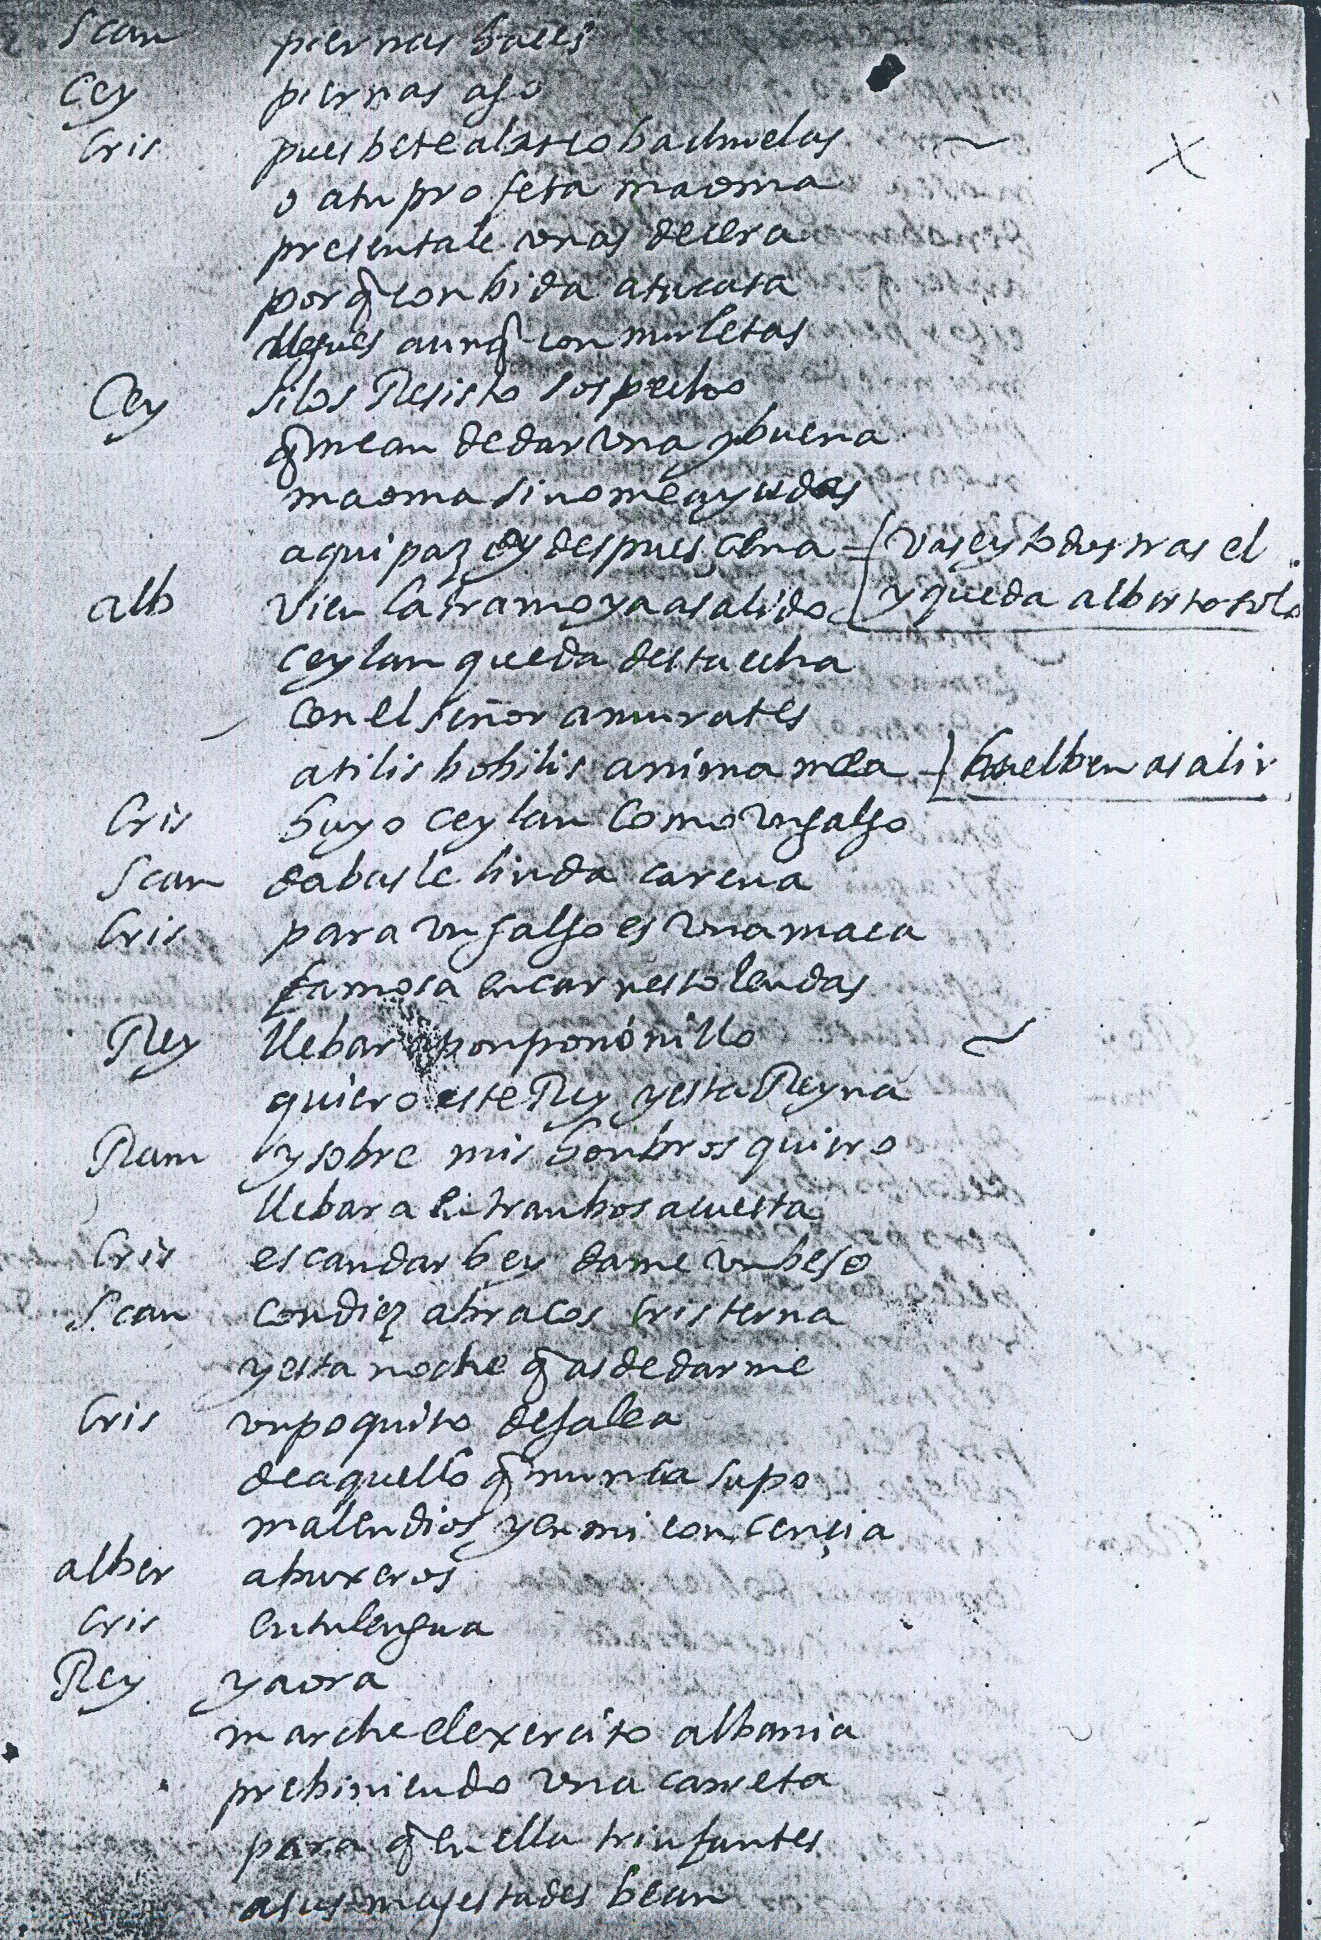 Scan piernas haçes
Cey piernas ago
Cris pues bete a
o atu profeta maoma
presentale vnas decera
porq conbida atucasa
llegues aunq con muletas
Cey silos Resisto sospecho
q mean dedar vna ybuena
maoma sinomeayudas
aqui paz y despues çena vasey todos tras el
alb vien la tramoya asalido y queda alberto solo
ceylan queda desta echa
con el señor amurates
atilis bobilis anima mea buelben asalir
Cris huyo ceylan como vn galgo
Scan dabasle linda carena
Cris para vn galgo es vna maca
famosa en carnestolendas
Rey llebar ponponónillo
quiero este Rey y esta Reyna
Ram y sobre mis honbros quiero
llebara entranbos acuesta
Cris escandar bey dame vn beso
Scan con diez abraços cristerna
y esta noche q as dedarme
Cris vn poquito de galea
deaquello q nunca supo
mal en dios y en mi concençia
alber abuxeros
Cris entu lengua
Rey y aora
marche el exercito albania
prebiniendo vna carreta
para q en ella triunfantes
asus magestades bean